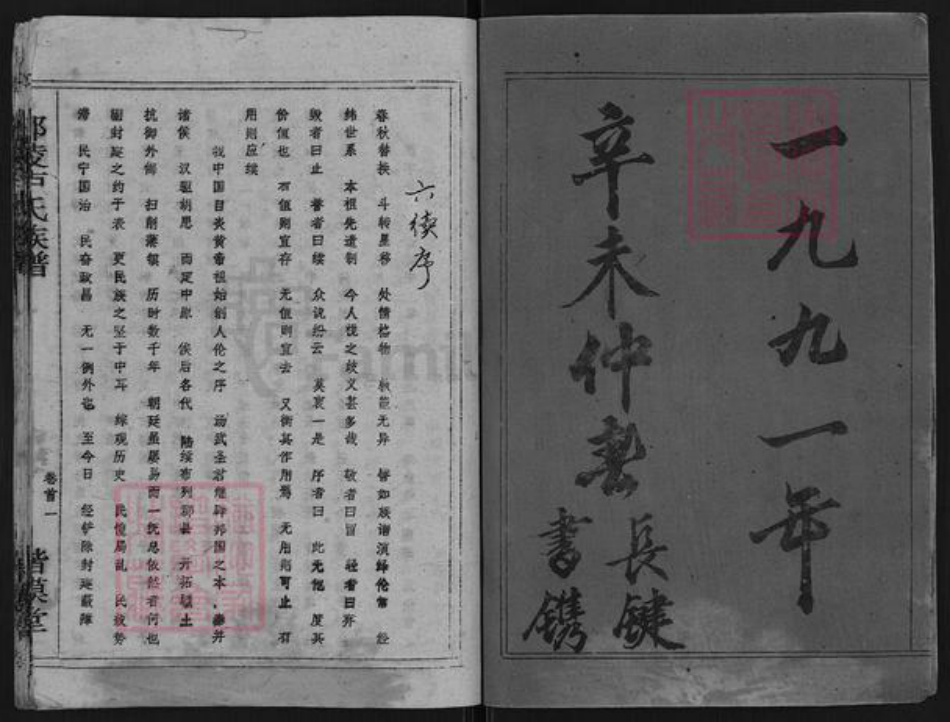 一九九一年
辛未仲春
長键
書鐫
六续序
春秋替换 斗转星移 处情格物 轨范无异 譬如族谱演绎伦常 经
纬世系 本祖先遗制 今人拢之歧义甚多哉 敬者曰旨 轻者曰弃
毁者曰止 善者曰续 众说纷云 莫衷一是 序者曰 此无他 度其
价值也 有值则宜存 无值则宜去 又衡其作用焉 无用则可止 有
用则应续
我中国自炎黄帝祖始创人伦之序 汤武圣君继肇邦国之本
诸侯 汉驱胡思 而定中原 候后各代 陆续布列郡县 开拓疆土
抗御外侮 扫削藩镇 历时数千年 朝廷虽屡易而一统总依然者何也
封建之约于表 更民族之坚于中耳 综观历史 民愤局乱 民疲势
滞 民宁国治 民奋政昌 无一例外也 至今日 经铲除封建蔽障
氏族谱
卷首一
楷模堂